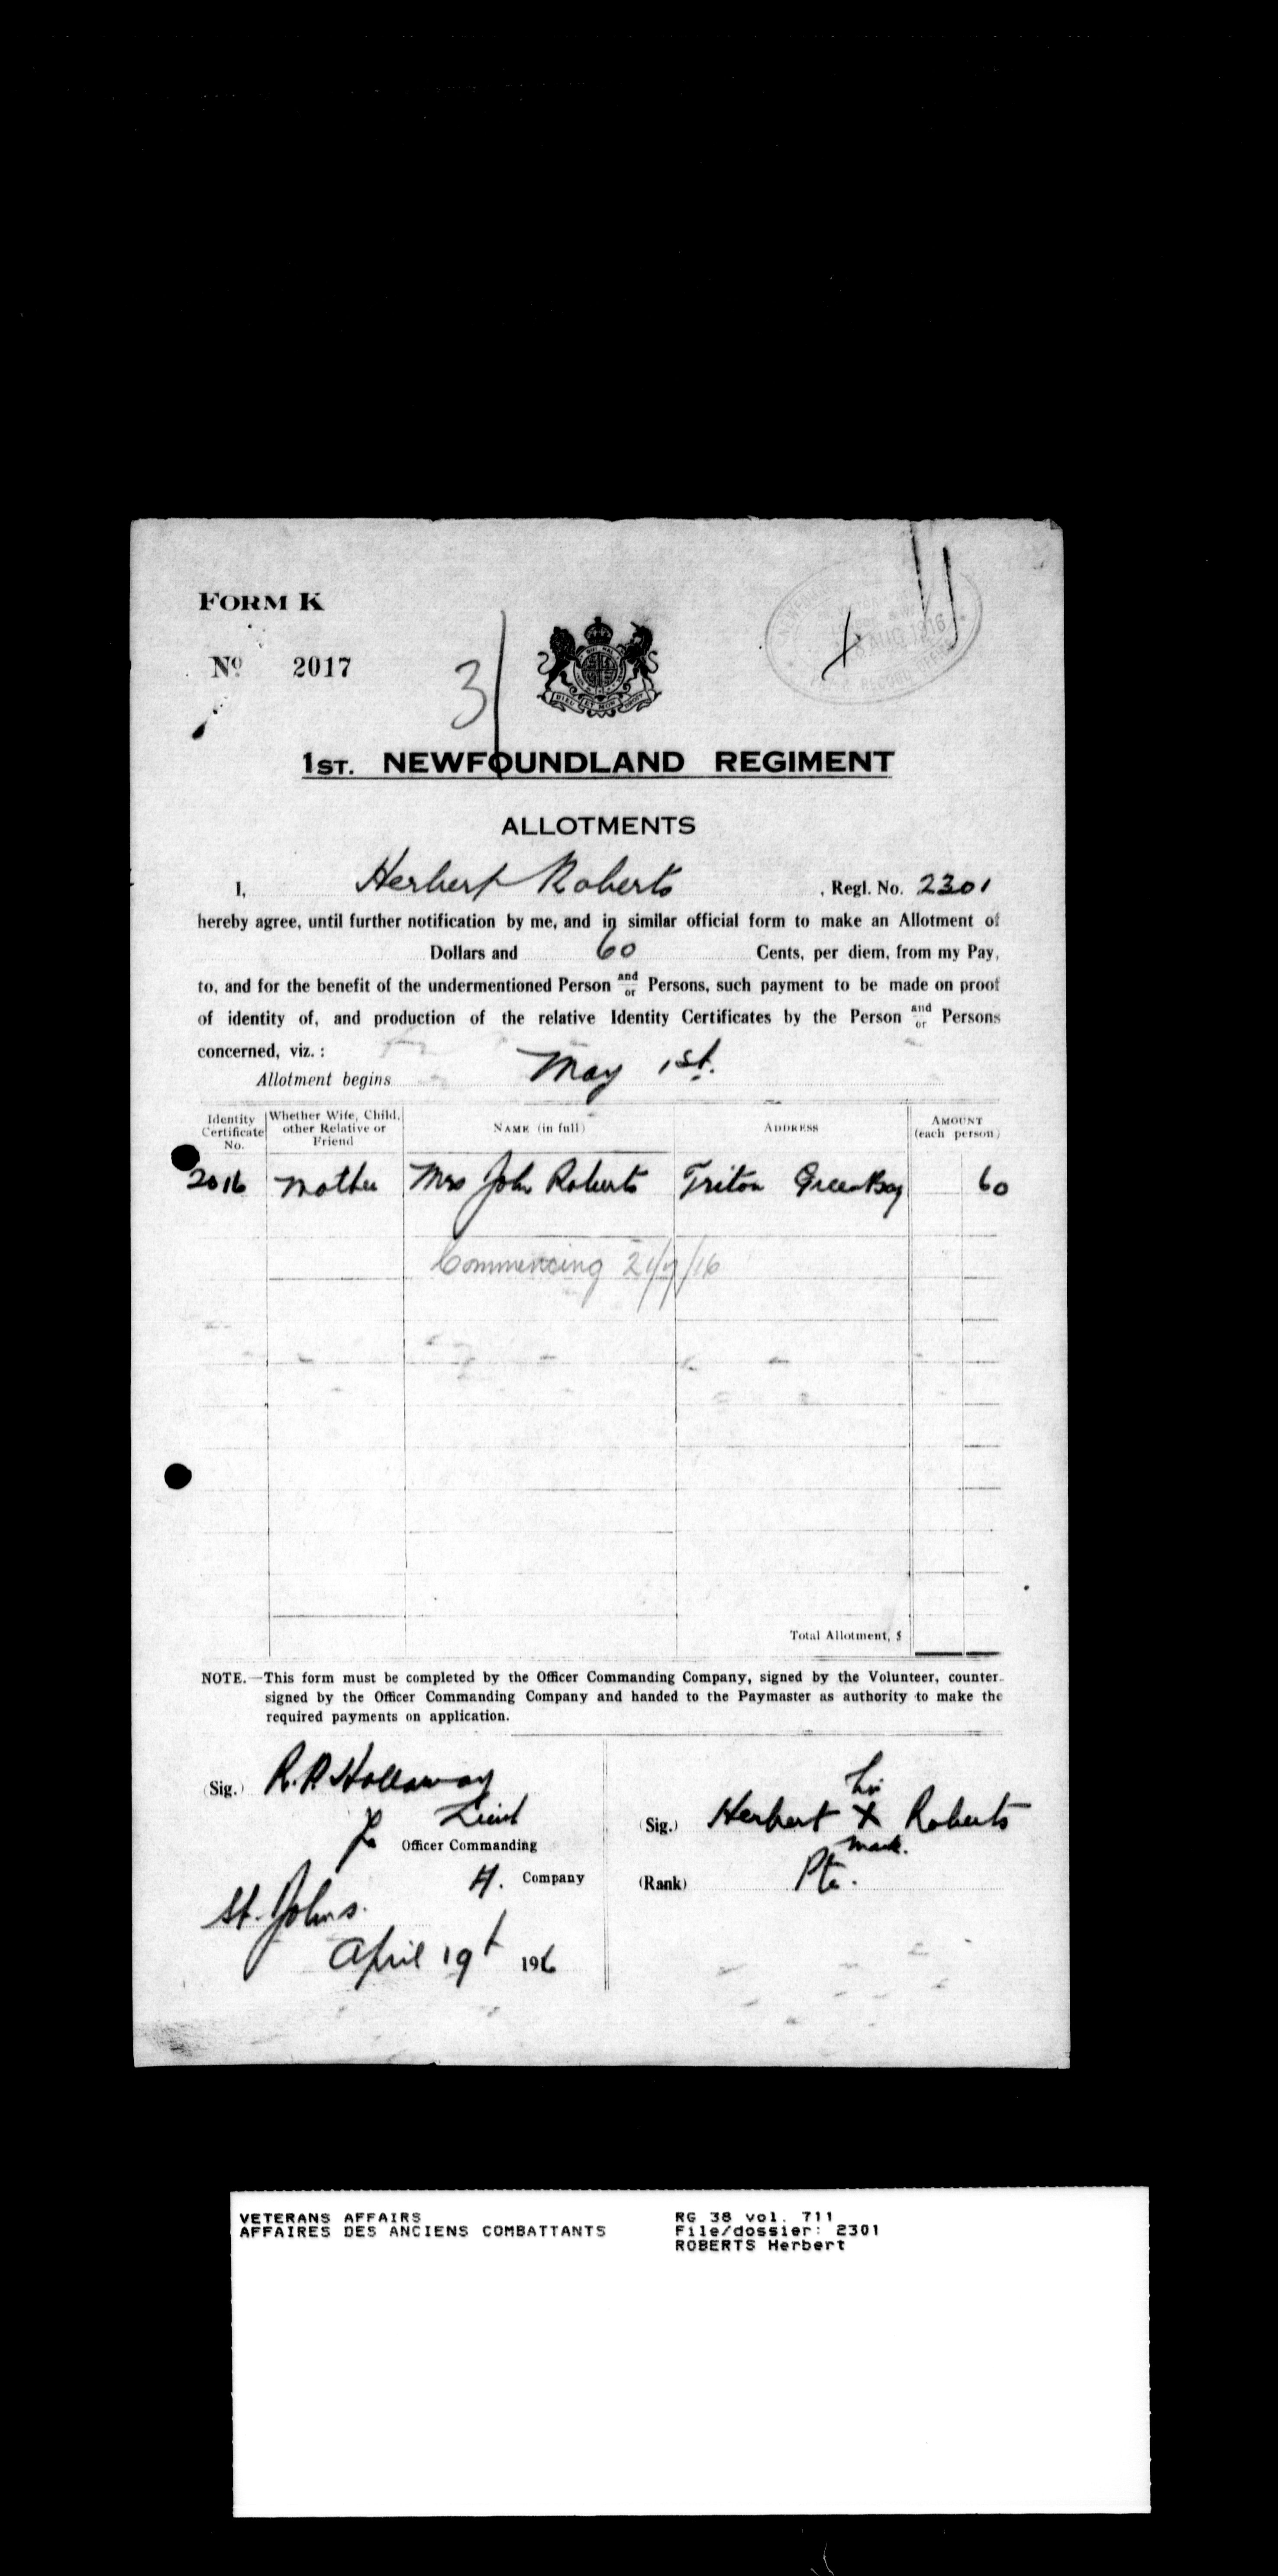 FORM K
No 2017
3
AUG 1916
RECORD
DIEU ET MON DROIT
1ST. NEWFOUNDLAND REGIMENT
ALLOTMENTS
I, Herbert Roberts , Regl. No. 2301
hereby agree, until further notification by me, and in similar official form to make an Allotment of
Dollars and 60 Cents, per diem, from my Pay,
to, and for the benefit of the undermentioned Person and/or Persons, such payment to be made on proof
of identity of, and production of the relative Identity Certificates by the Person and/or Persons
concerned, viz. :
Allotment begins May 1st.
Identity Certificate No. Whether Wife, Child, other Relative or Friend NAME (in full) ADDRESS AMOUNT (each person)
2016 Mother Mrs John Roberts Triton Green Bay 60
Commencing 21/7/16
Total Allotment, $
NOTE.—This form must be completed by the Officer Commanding Company, signed by the Volunteer, counter-
signed by the Officer Commanding Company and handed to the Paymaster as authority to make the
required payments on application.
(Sig.) R.P. Holloway
Lieut
Officer Commanding
H. Company
St. Johns.
April 19t 1916
his
(Sig.) Herbert X Roberts
mark.
(Rank) Pte.
VETERANS AFFAIRS
AFFAIRES DES ANCIENS COMBATTANTS
RG 38 vol. 711
File/dossier: 2301
ROBERTS Herbert